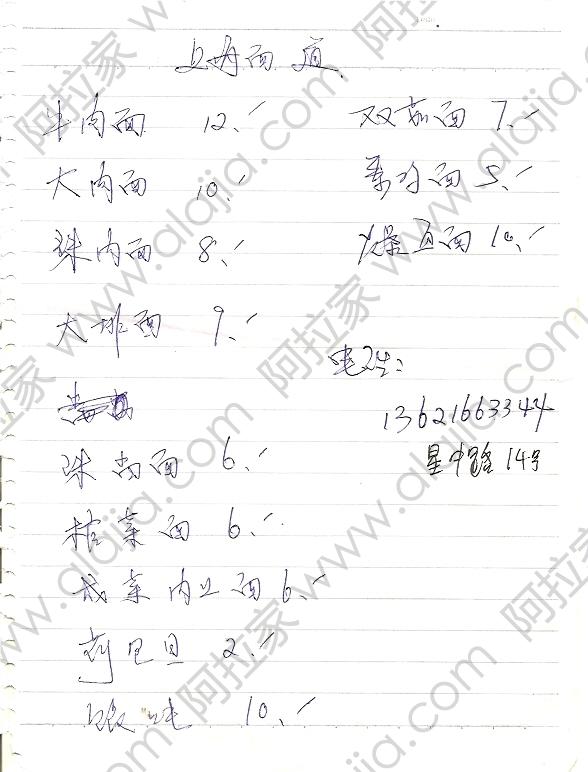 上海面道
牛肉面 12.
双菇面 7.
大肉面 10.
素鸡面 5.
辣肉面 8.
爆鱼面 10.
大排面 9.
电话:
13621663344
星中路 14号
面 6.
菜面 6.
咸菜肉丝面 6.
荷包旦 2.
10.
阿拉家 www.alajia.com